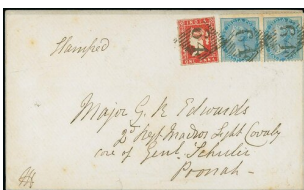 Stamped
Major G. R. Edwards
2d Regt Madras Light Cavaly
care of Genl. Schuler
Poonah.